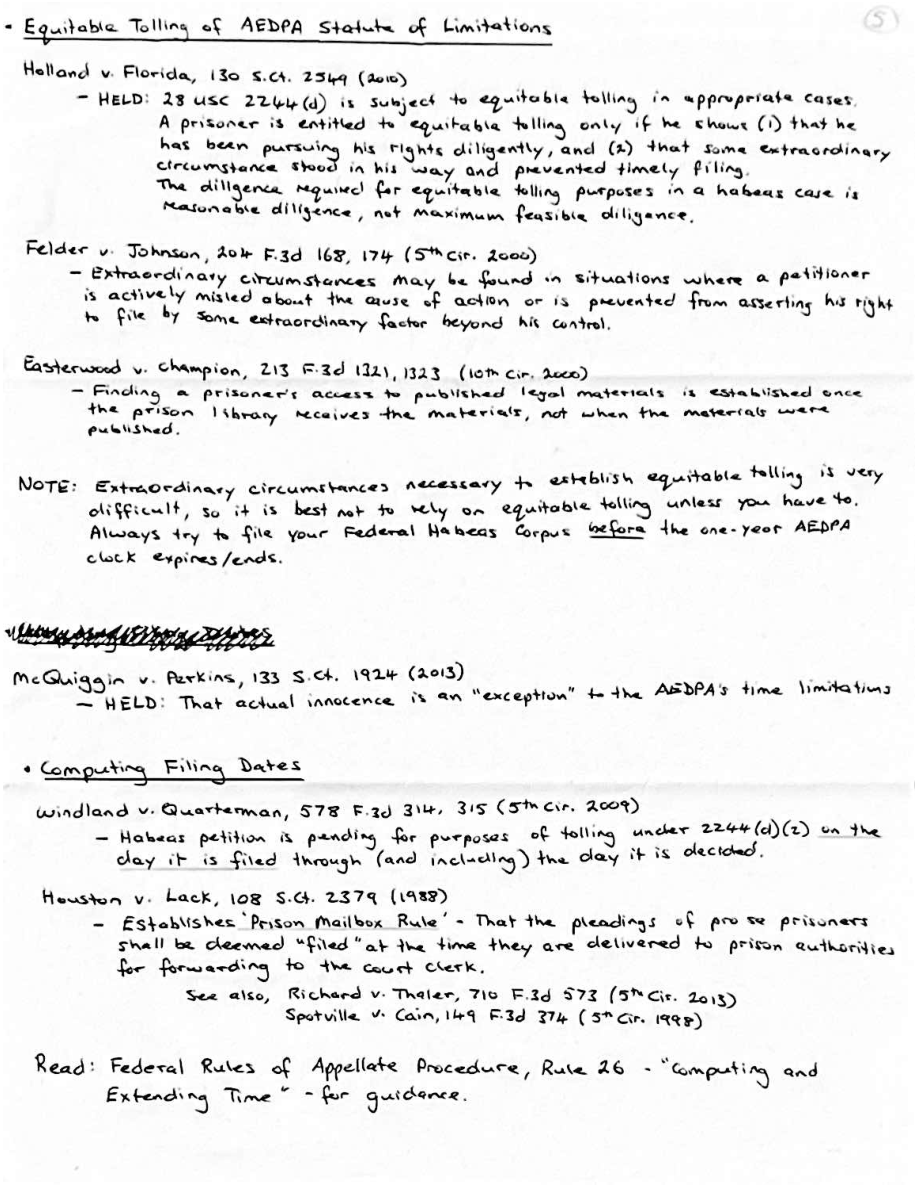 5
• Equitable Tolling of AEDPA Statute of Limitations
Holland v. Florida, 130 S.Ct. 2549 (2010)
– HELD: 28 USC 2244(d) is subject to equitable tolling in appropriate cases.
A prisoner is entitled to equitable tolling only if he shows (1) that he
has been pursuing his rights diligently, and (2) that some extraordinary
circumstance stood in his way and prevented timely filing.
The diligence required for equitable tolling purposes in a habeas case is
reasonable diligence, not maximum feasible diligence.
Felder v. Johnson, 204 F.3d 168, 174 (5th Cir. 2000)
– Extraordinary circumstances may be found in situations where a petitioner
is actively misled about the cause of action or is prevented from asserting his right
to file by some extraordinary factor beyond his control.
Easterwood v. Champion, 213 F.3d 1321, 1323 (10th Cir. 2000)
– Finding a prisoner's access to published legal materials is established once
the prison library receives the materials, not when the materials were
published.
NOTE: Extraordinary circumstances necessary to establish equitable tolling is very
difficult, so it is best not to rely on equitable tolling unless you have to.
Always try to file your Federal Habeas Corpus before the one-year AEDPA
clock expires/ends.
McQuiggin v. Perkins, 133 S.Ct. 1924 (2013)
– HELD: That actual innocence is an "exception" to the AEDPA's time limitations
• Computing Filing Dates
Windland v. Quarterman, 578 F.3d 314, 315 (5th Cir. 2009)
– Habeas petition is pending for purposes of tolling under 2244(d)(2) on the
day it is filed through (and including) the day it is decided.
Houston v. Lack, 108 S.Ct. 2379 (1988)
– Establishes 'Prison Mailbox Rule' - That the pleadings of pro se prisoners
shall be deemed "filed" at the time they are delivered to prison authorities
for forwarding to the court clerk.
See also, Richard v. Thaler, 710 F.3d 573 (5th Cir. 2013)
Spotville v. Cain, 149 F.3d 374 (5th Cir. 1998)
Read: Federal Rules of Appellate Procedure, Rule 26 - "Computing and
Extending Time" - for guidance.